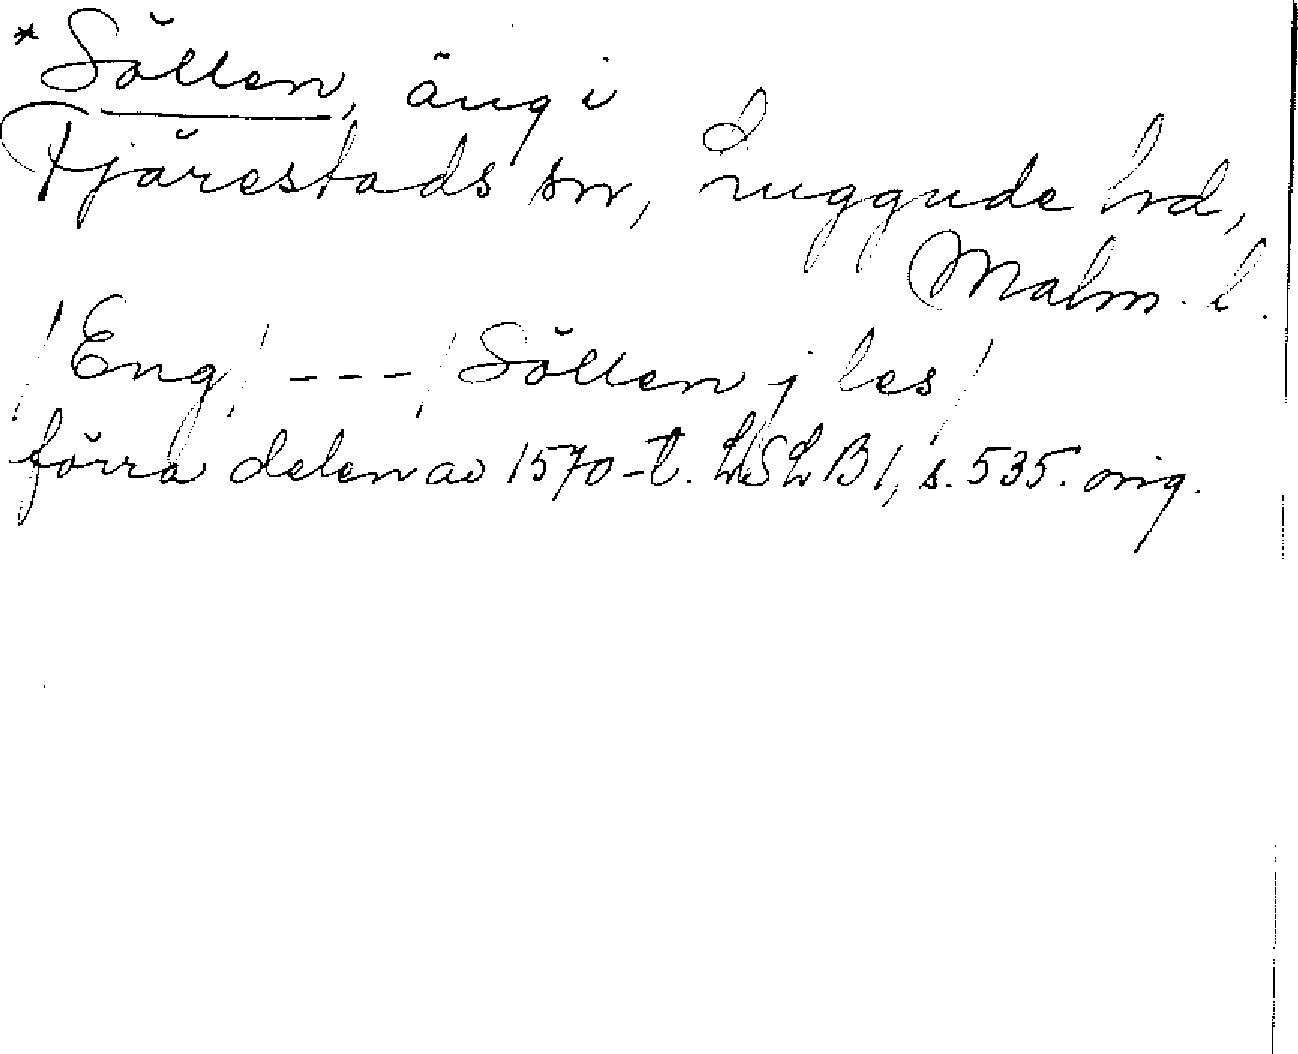 *Söllen, äng i
Fjärestads sn, Luggude hd,
Malm. l.
/Eng/ --- /Söllen j les/
förra delen av 1570-t. LSLB1, s. 535. orig.